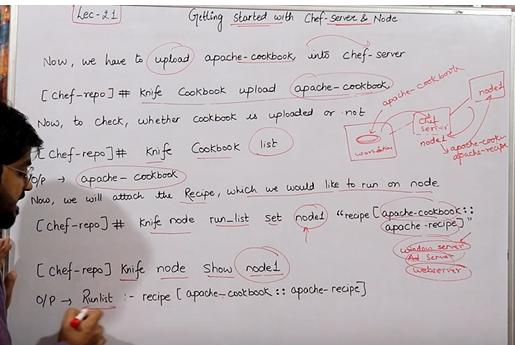 Lec-21
Getting started with Chef-server & Node
Now, we have to upload apache-cookbook, into chef-server
[chef-repo]# knife Cookbook upload apache-cookbook
Now, to check, whether cookbook is uploaded or not
[Chef-repo]# Knife Cookbook list
O/P → apache-cookbook
Now, we will attach the Recipe, which we would like to run on node
[chef-repo]# knife node run_list set node1 "recipe [apache-cookbook::
apache-recipe]"
window server
Ad Server
webserver
[chef-repo] Knife node show node1
O/P → Runlist :- recipe [apache-cookbook :: apache-recipe]
apache-cookbook
node1
Chef
server
workstation
node1
apache-recipe